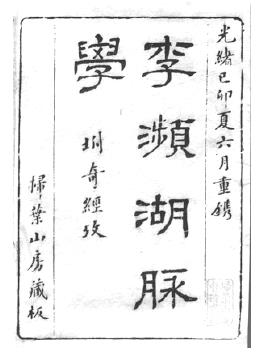 光緒己卯夏六月重鐫
李瀕湖脉
學
坿奇經攷
掃葉山房藏板